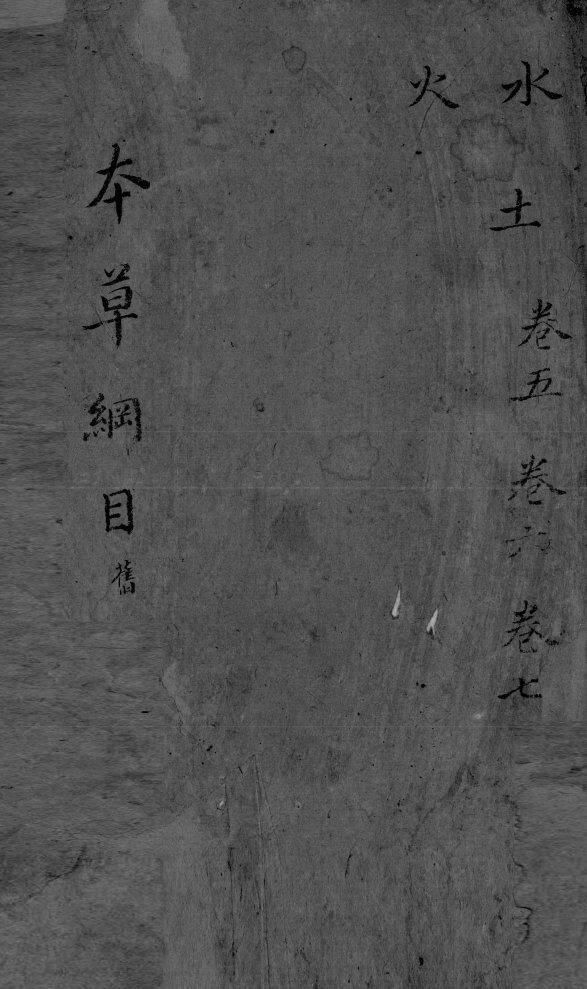 水 土 卷五 卷六 卷七
火
本草綱目 舊